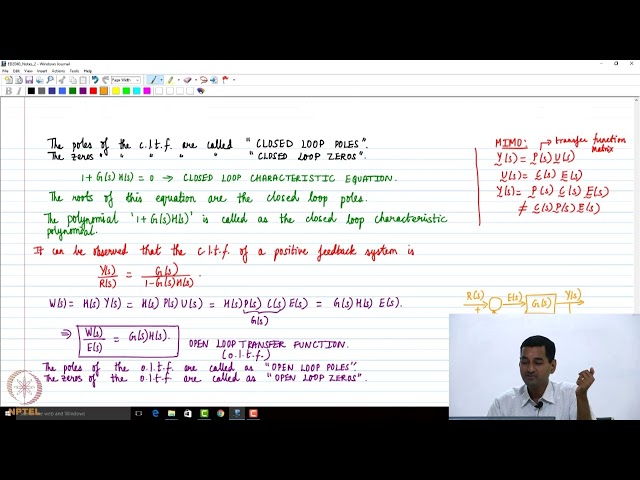 ED2040_Notes_2 - Windows Journal
File Edit View Insert Actions Tools Help
Page Width
The poles of the c.l.t.f. are called "CLOSED LOOP POLES".
The zeros " " " " " "CLOSED LOOP ZEROS".
1+G(s)H(s)=0 → CLOSED LOOP CHARACTERISTIC EQUATION.
The roots of this equation are the closed loop poles.
The polynomial '1+G(s)H(s)' is called as the closed loop characteristic
polynomial.
It can be observed that the c.l.t.f. of a positive feedback system is
Y(s)/R(s) = G(s)/(1-G(s)H(s)).
W(s) = H(s) Y(s) = H(s) P(s) U(s) = H(s) P(s) C(s) E(s) = G(s) H(s) E(s).
G(s)
⇒ W(s)/E(s) = G(s)H(s). OPEN LOOP TRANSFER FUNCTION.
(o.l.t.f.)
The poles of the o.l.t.f. are called as "OPEN LOOP POLES".
The zeros of the o.l.t.f. are called as "OPEN LOOP ZEROS".
MIMO: → transfer function
matrix
Y(s) = P(s) U(s)
U(s) = C(s) E(s)
Y(s) = P(s) C(s) E(s)
≠ C(s) P(s) E(s)
R(s) + E(s) G(s) Y(s)
NPTEL
the web and Windows